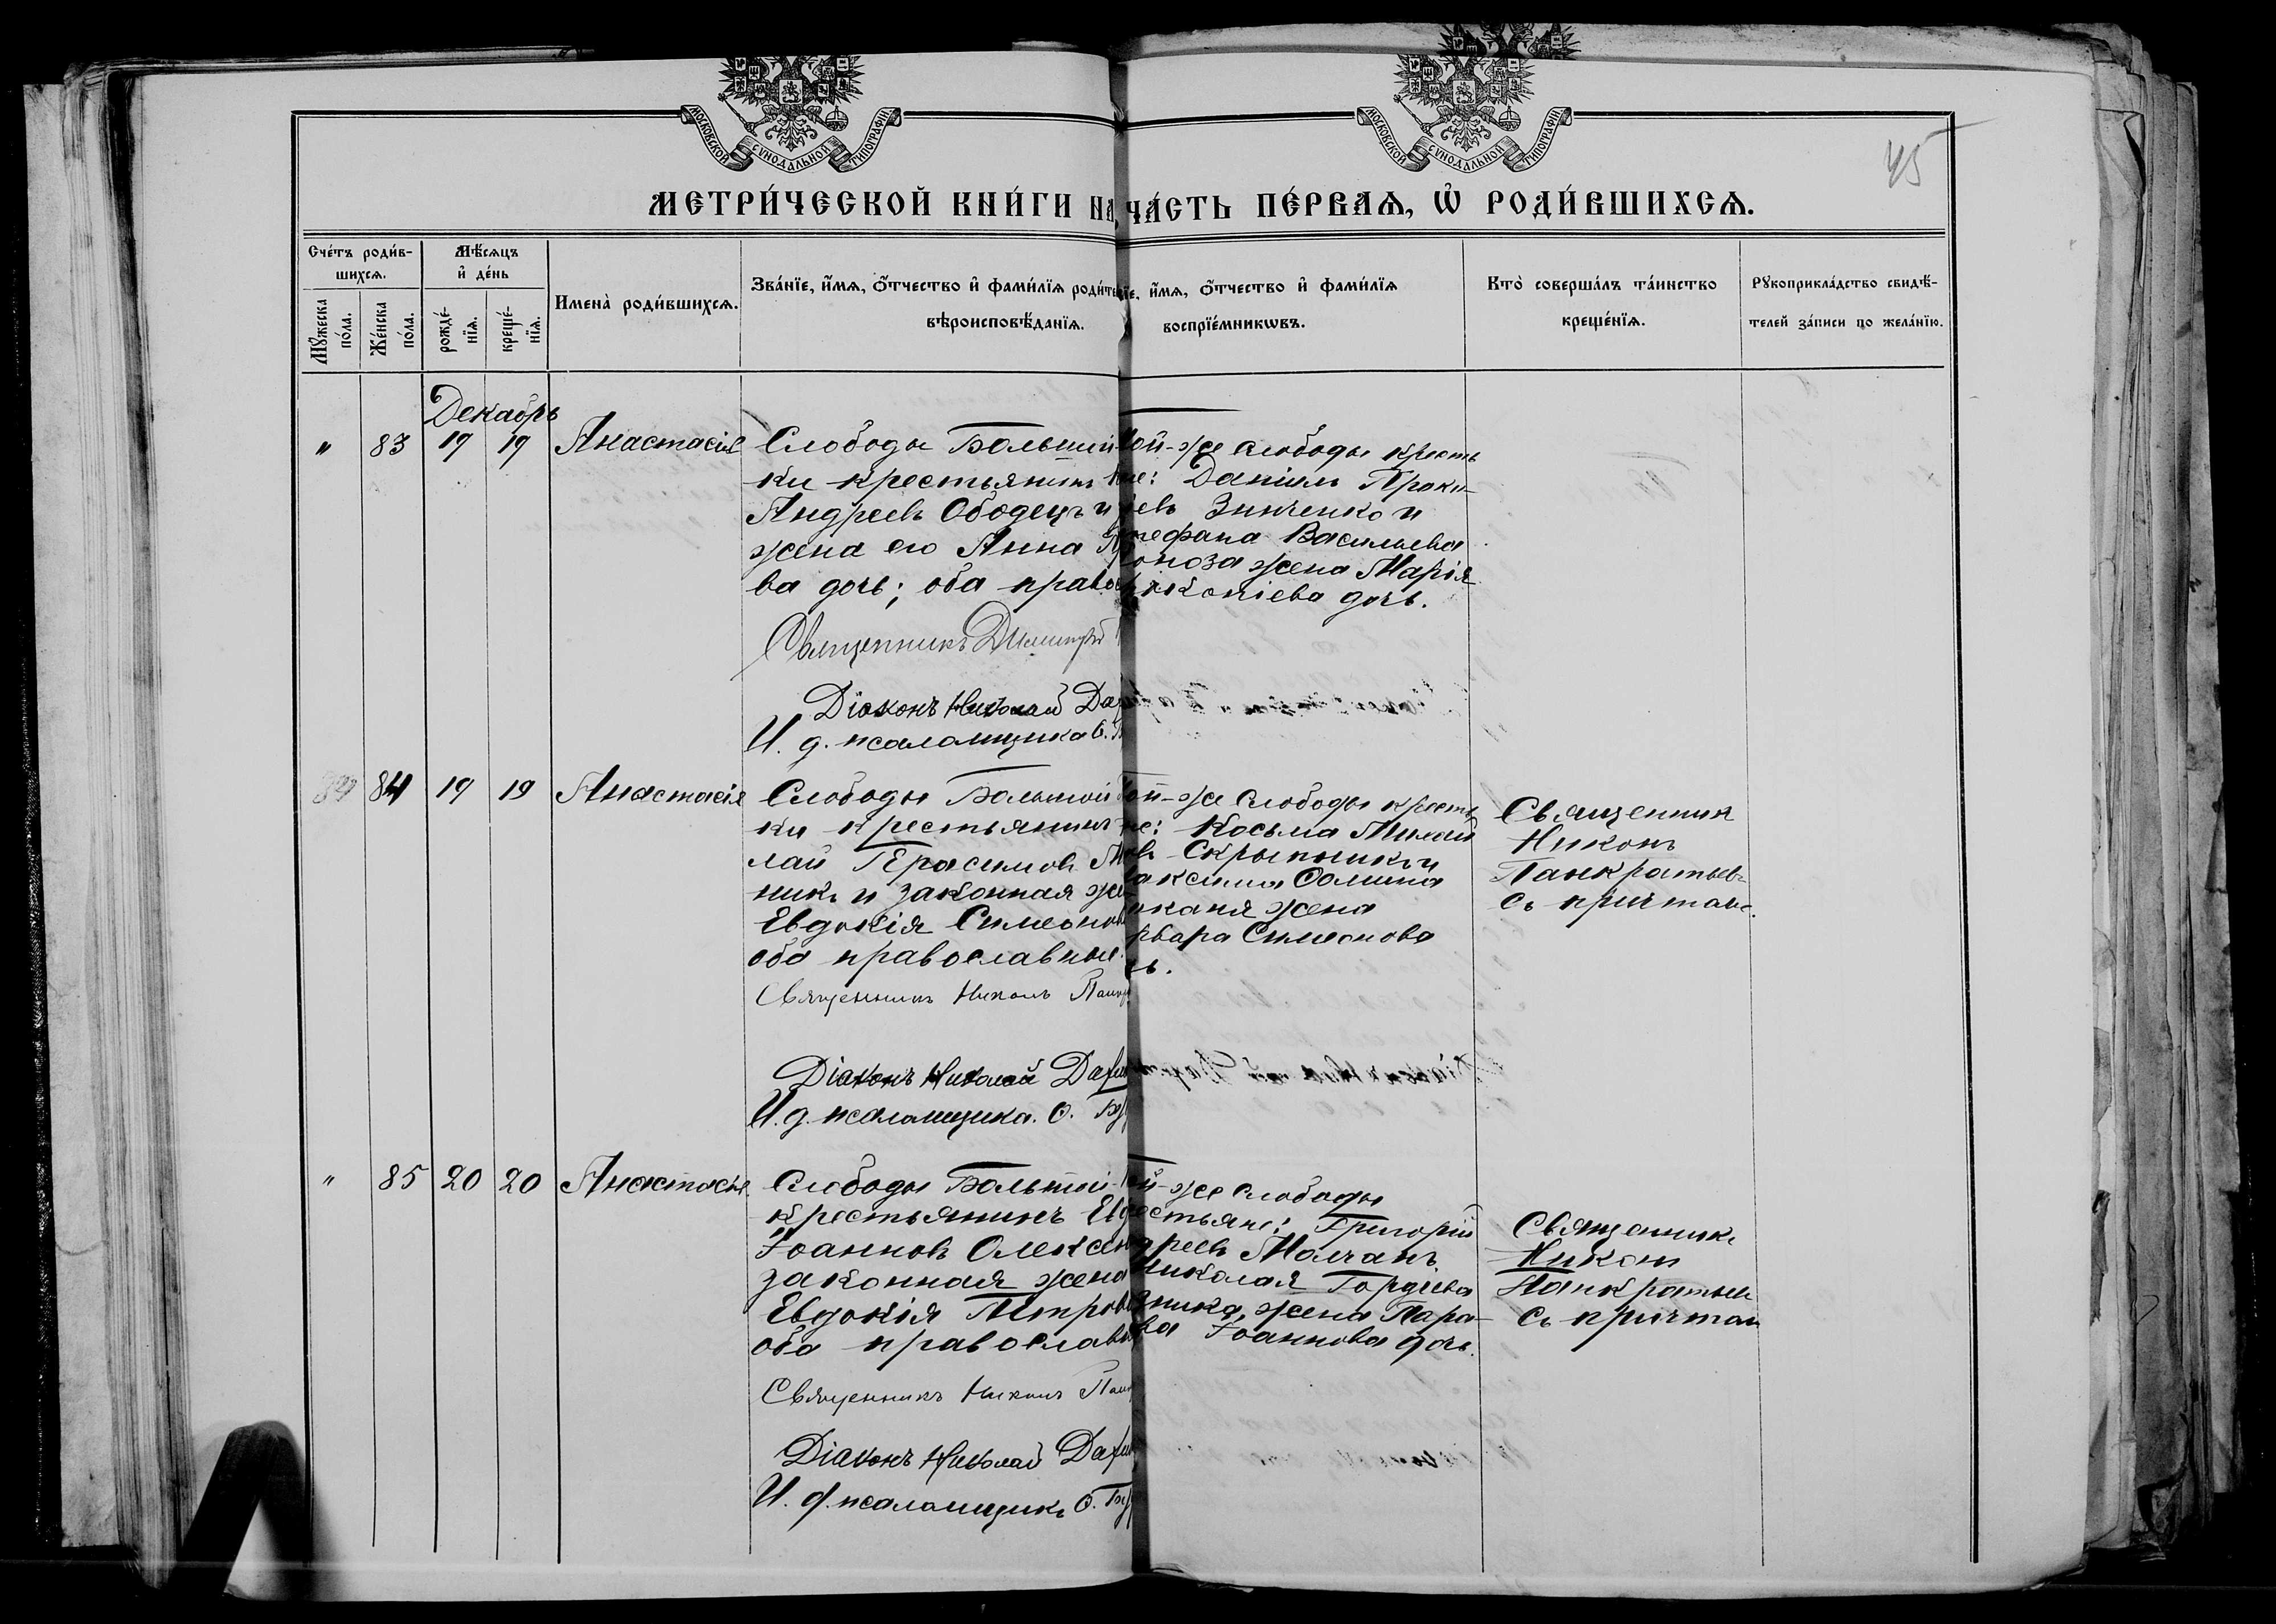 МОСКОВСКОЙ СѴНОДАЛЬНОЙ ТИПОГРАФІИ
МОСКОВСКОЙ СѴНОДАЛЬНОЙ ТИПОГРАФІИ
45
МЕТРИ́ЧЕСКОЙ КНИ́ГИ НА
ЧА́СТЬ ПЕ́РВАѦ, Ѡ РОДИ́ВШИХСѦ.
Сче́тъ роди́в-
шихсѧ.
Мѣ́сѧцъ
и҆ де́нь
Мꙋ́жеска
по́ла.
Же́нска
по́ла.
рожде́-
нїѧ.
креще́-
нїѧ.
Имена̀ роди́вшихсѧ.
Зва́нїе, и҆́мѧ, ѻ҆́тчество и҆ фами́лїѧ роди́те
вѣроисповѣ́данїѧ.
їе, и҆́мѧ, ѻ҆́тчество и҆ фами́лїѧ
воспрїе́мникѡвъ.
Кто̀ соверша́лъ та́инство
креще́нїѧ.
Рꙋкоприкла́дство свидѣ́-
телей за́писи по жела́нїю.
Декабрь
" 83 19 19 Анастасія
Слободы Больший
ки крестьянинъ
Андреевъ Ободецъ и
жена его Анна
ва дочь; оба право
Священникъ Димитрій
Діаконъ Николай Дах
И. д. псаломщика О.
той-же слободы кресть
не: Даніилъ Проко-
Зинченко и
Стефана Васильева
жена Марія
дочь.
84 19 19 Анастасія
Слободы Больший
ки крестьянинъ
лай Герасимовъ
никъ и законная же
Евдокія Симеонов
оба православные.
Священникъ Никонъ Панкр
Діаконъ Николай Дахн
И. д. псаломщика. О. Бу
той-же слободы кресть
не: Косьма Михай
овъ Скрыпникъ и
аксима Ѳомина
жена
рвара Симеонова
ь.
Священник
Никонъ
Панкратьев
съ причтом.
" 85 20 20 Анастасія
Слободы Больший
крестьянинъ Ев
Іоанновъ Олексен
законная жена
Евдокія Петров
оба православн
Священникъ Никонъ Панк
Діаконъ Николай Дахн
И. д. псаломщикъ О. Бу
ой-же слободы
рестьяне: Григорій
дреевъ Молчанъ
Николая Гордіева
жена Пара-
ва Іоаннова дочь.
Священникъ
Никон
Панкратьев
съ причтом